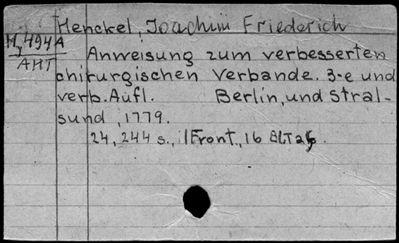 Henckel, Joachim Friederich
H, 494A
AHT
Anweisung zum verbesserten
chirurgischen Verbande. 3-e und
verb. Aufl. Berlin, und Stral-
sund, 1779.
24, 244 s., 1 Front, 16 Bl